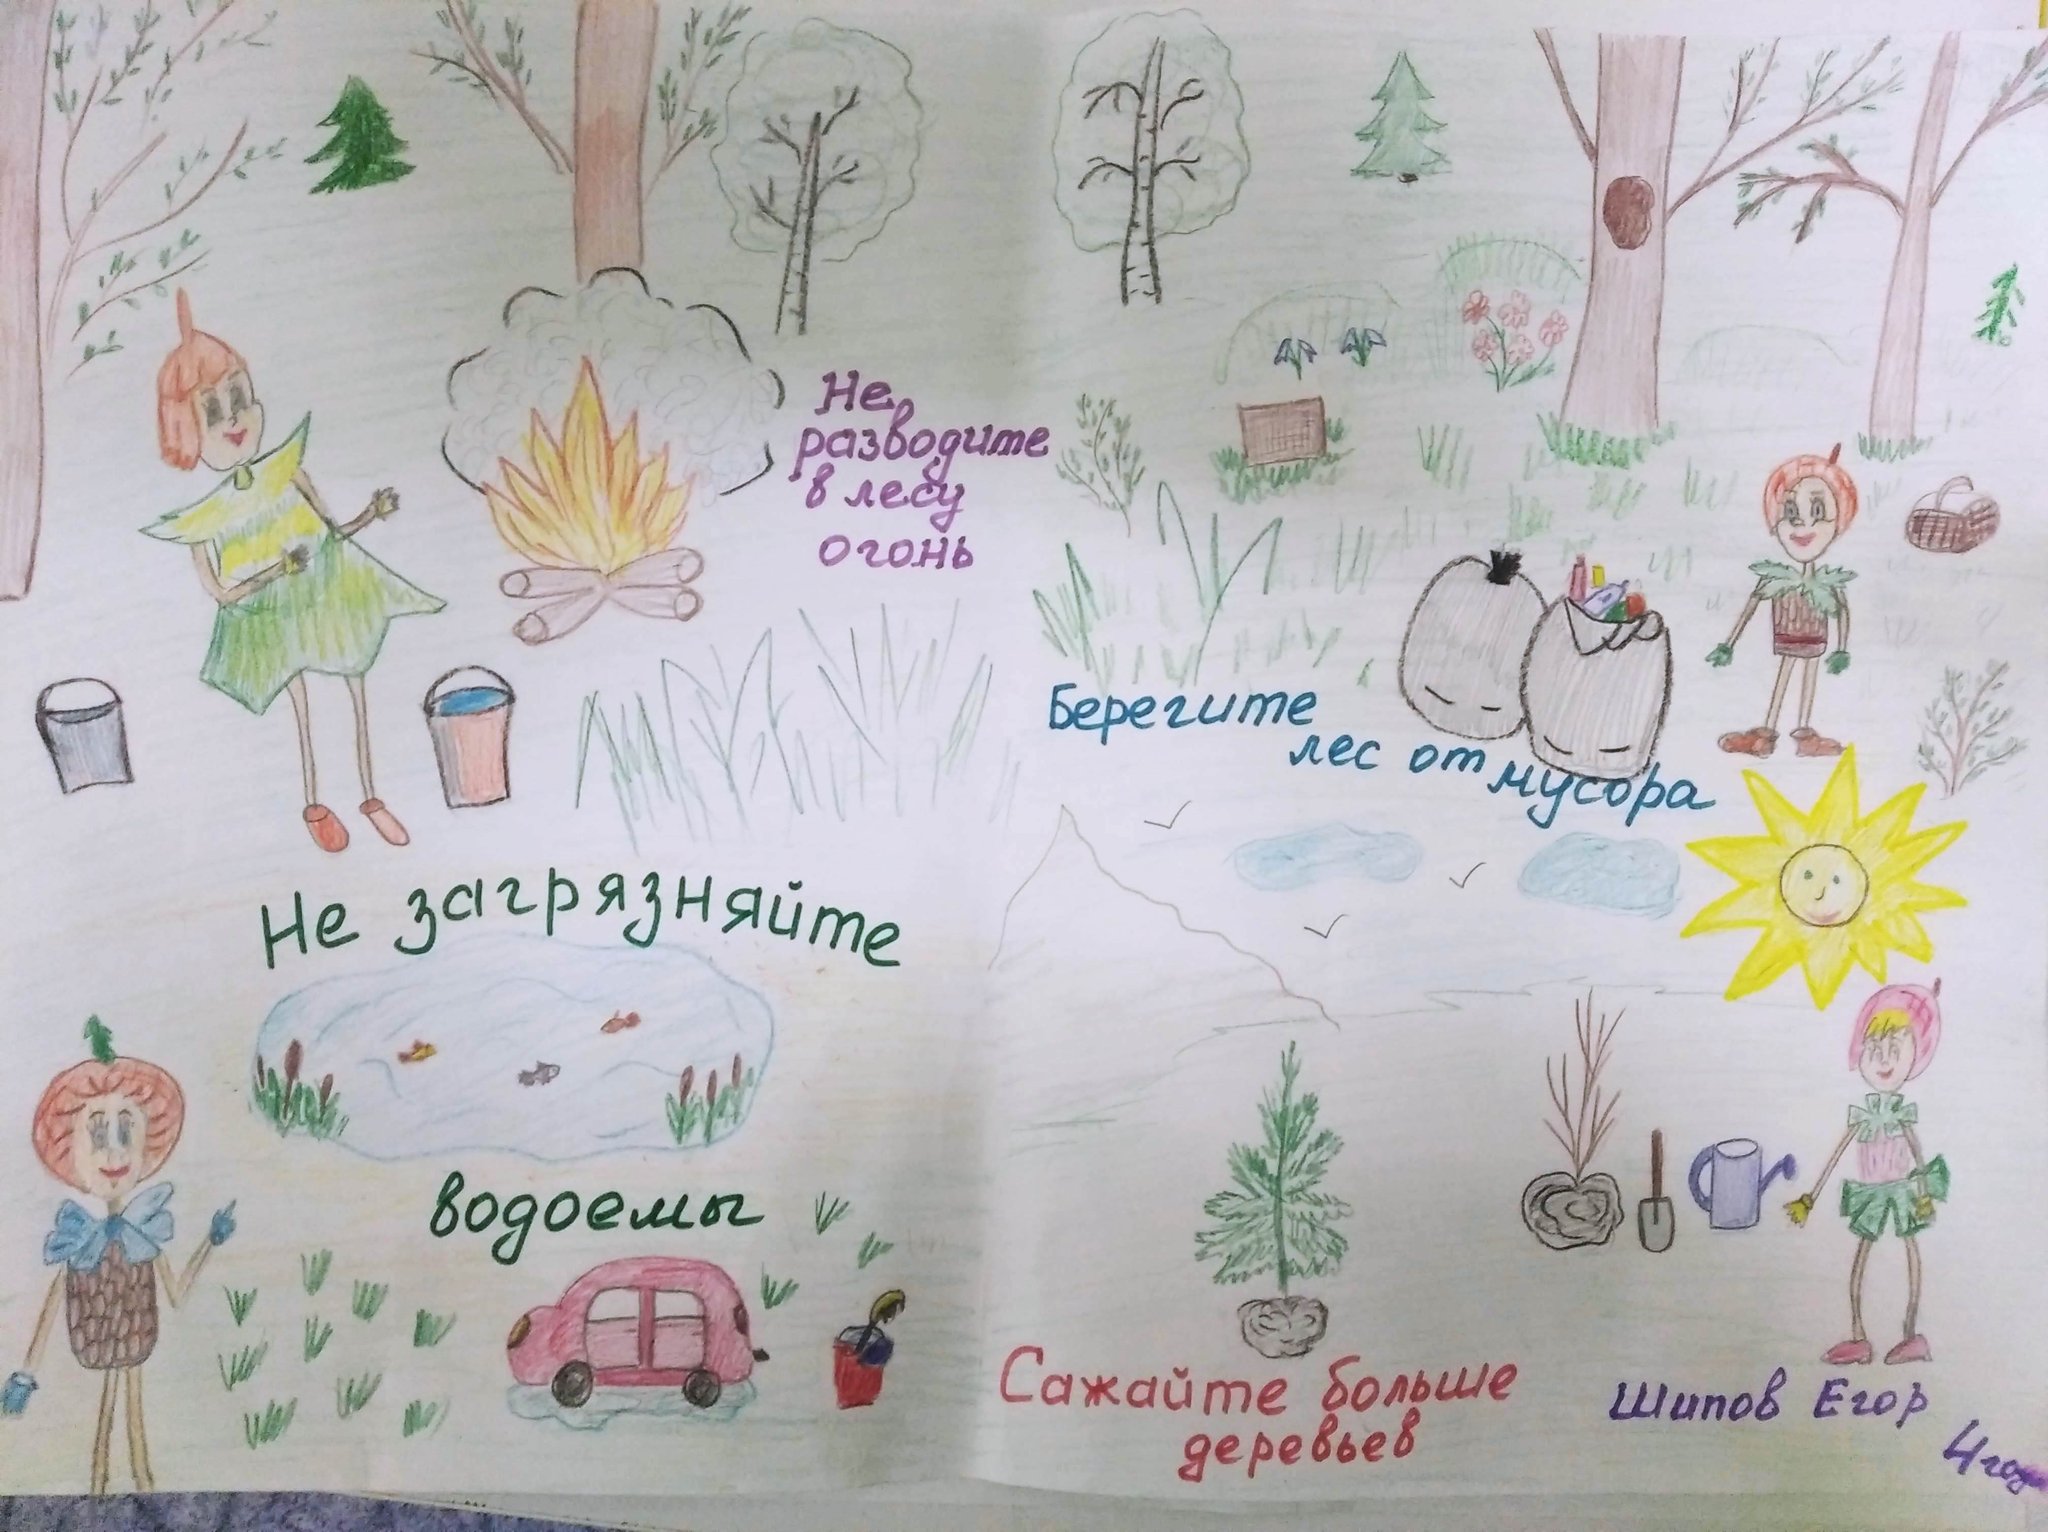 Не
разводите
в лесу
огонь
Берегите
лес от
мусора
Не загрязняйте
водоемы
Сажайте больше
деревьев
Шипов Егор
4 года